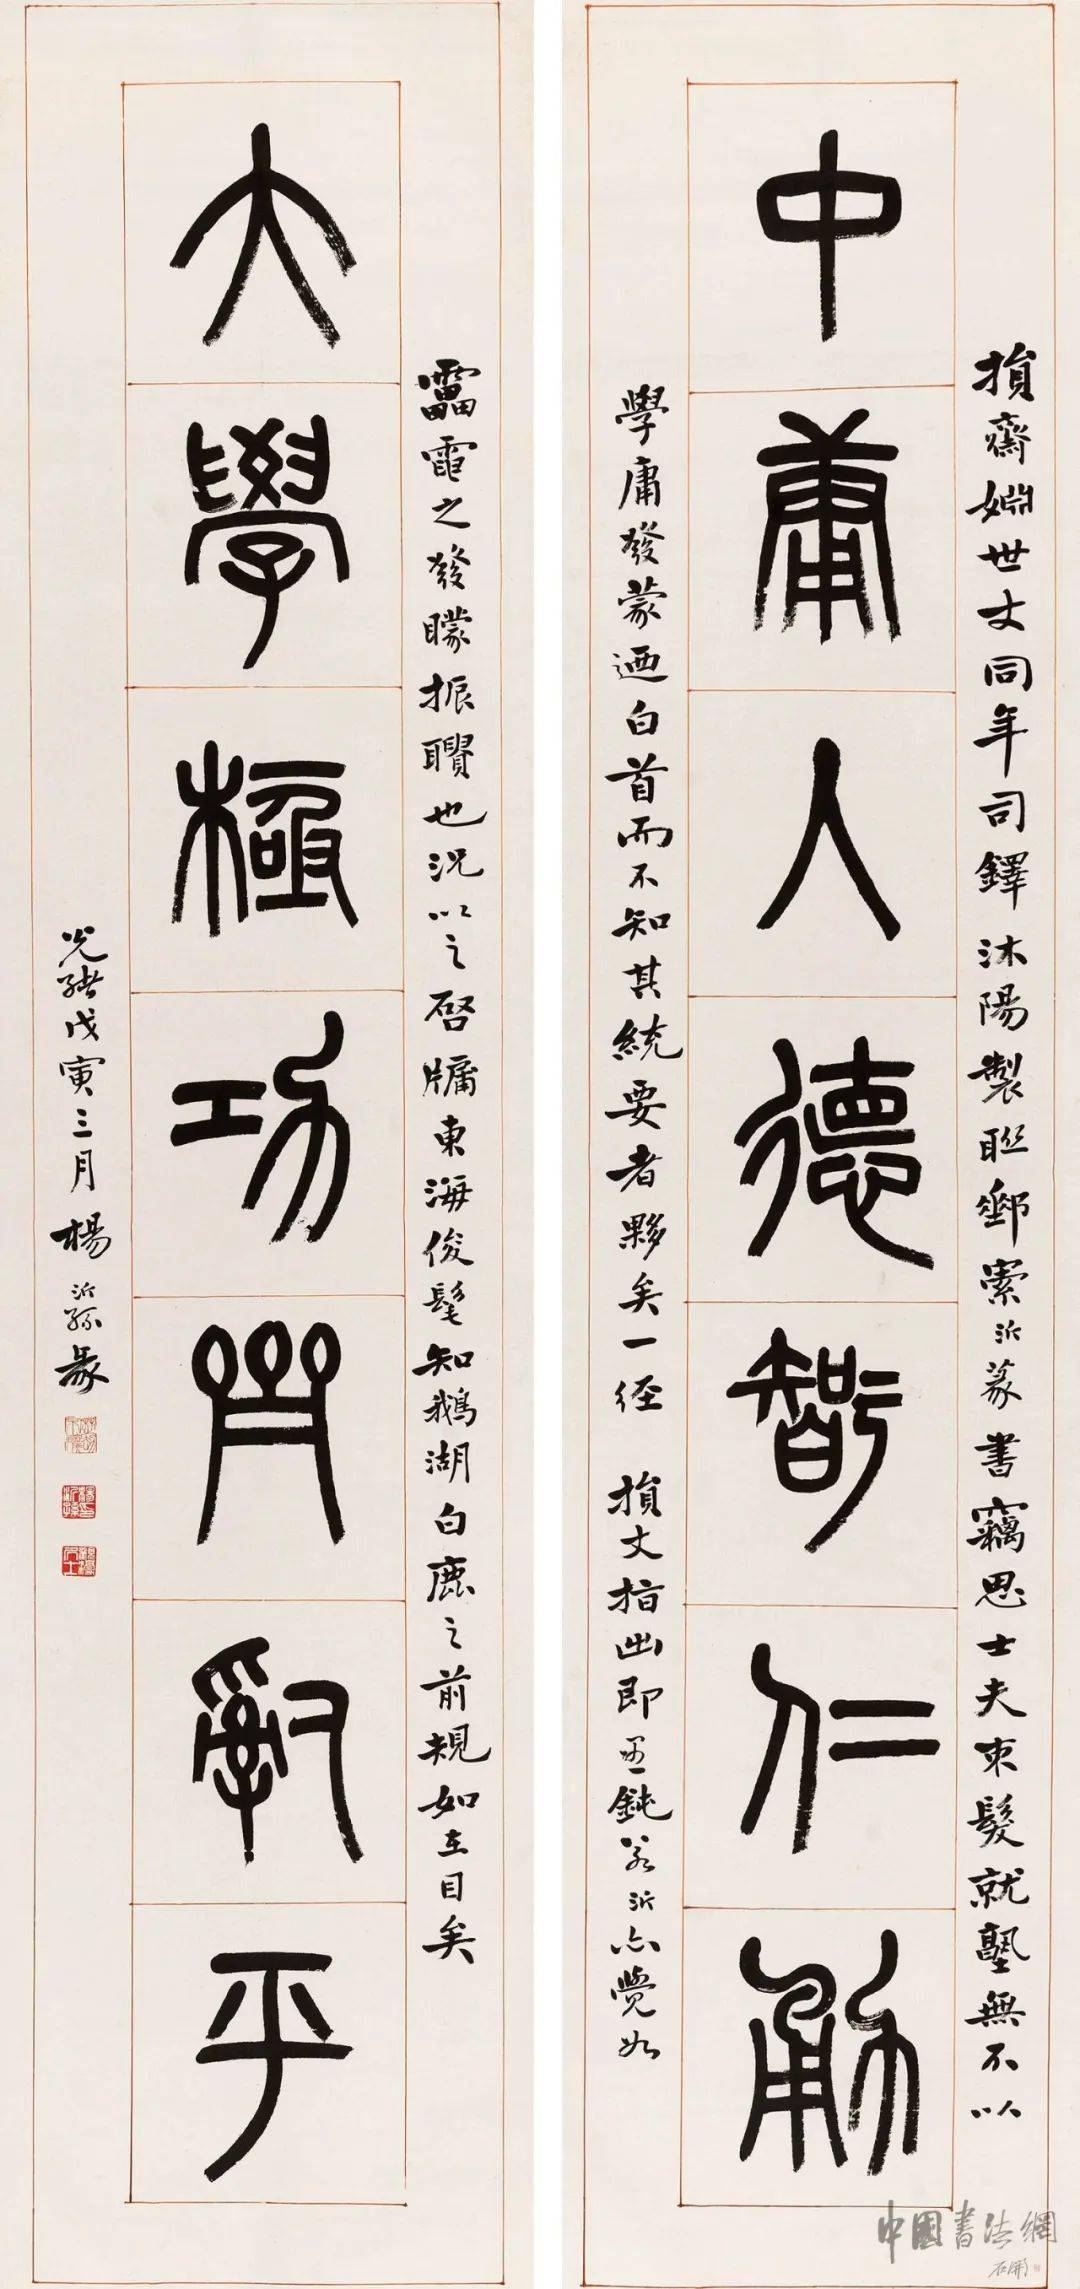 損齋姻世丈同年司鐸沭陽製聯郵索沂篆書竊思士夫束髮就塾無不以
中庸人德智仁勇
學庸發蒙迺白首而不知其統要者夥矣一經損丈指出即愚鈍若沂亦覺如
靁電之發矇振聵也況以之啓牖東海俊髦知鵝湖白鹿之前規如在目矣
大學極功齊治平
光緒戊寅三月楊沂孫篆
中國書法網
石開